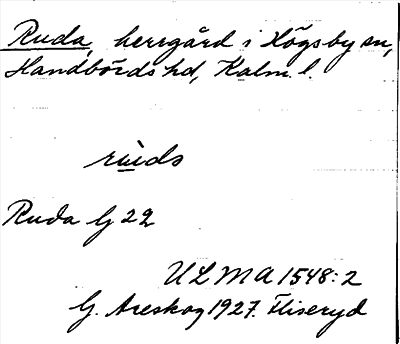 Ruda, herrgård i Högsby sn,
Handbörds hd, Kalm. l.
ruds
Ruda G 22
ULMA 1548:2
G. Areskog 1927. Fliseryd